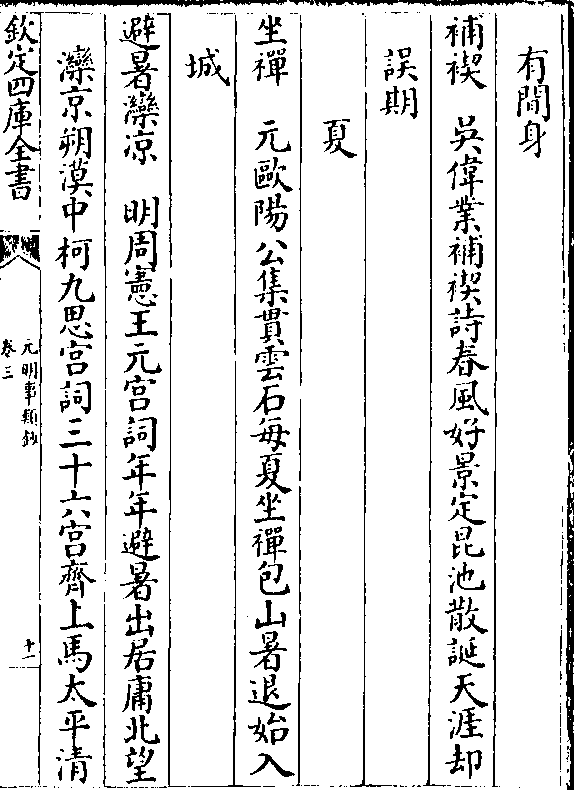 有間身
補禊　吳偉業補禊詩春風好景定昆池散誕天涯却
誤期
夏
坐禪　元歐陽公集貫雲石每夏坐禪包山暑退始入
城
避暑灤凉　明周憲王元宮詞年年避暑出居庸北望
灤京朔漠中柯九思宮詞三十六宮齊上馬太平清
欽定四庫全書
元明事類鈔
卷三
十一